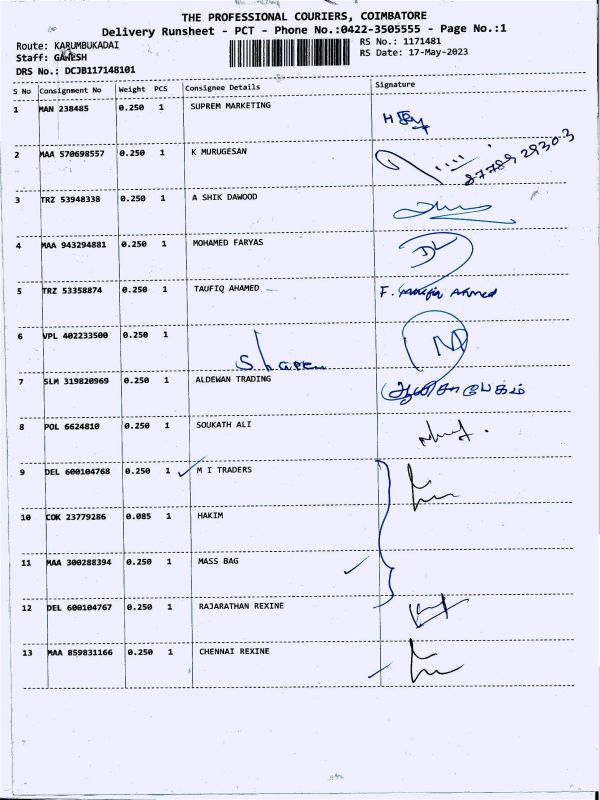 THE PROFESSIONAL COURIERS, COIMBATORE
Delivery Runsheet - PCT - Phone No.:0422-3505555 - Page No.:1
Route: KARUMBUKADAI RS No.: 1171481
Staff: GANESH RS Date: 17-May-2023
DRS No.: DCJB117148101
S No Consignment No Weight PCS Consignee Details Signature
1 MAN 238485 0.250 1 SUPREM MARKETING
2 MAA 570698557 0.250 1 K MURUGESAN
3 TRZ 53948338 0.250 1 A SHIK DAWOOD
4 MAA 943294881 0.250 1 MOHAMED FARYAS
5 TRZ 53358874 0.250 1 TAUFIQ AHAMED F. Ahmed
6 VPL 402233500 0.250 1
7 SLM 319820969 0.250 1 ALDEWAN TRADING
8 POL 6624810 0.250 1 SOUKATH ALI
9 DEL 600104768 0.250 1 M I TRADERS
10 COK 23779286 0.085 1 HAKIM
11 MAA 300288394 0.250 1 MASS BAG
12 DEL 600104767 0.250 1 RAJARATHAN REXINE
13 MAA 859831166 0.250 1 CHENNAI REXINE